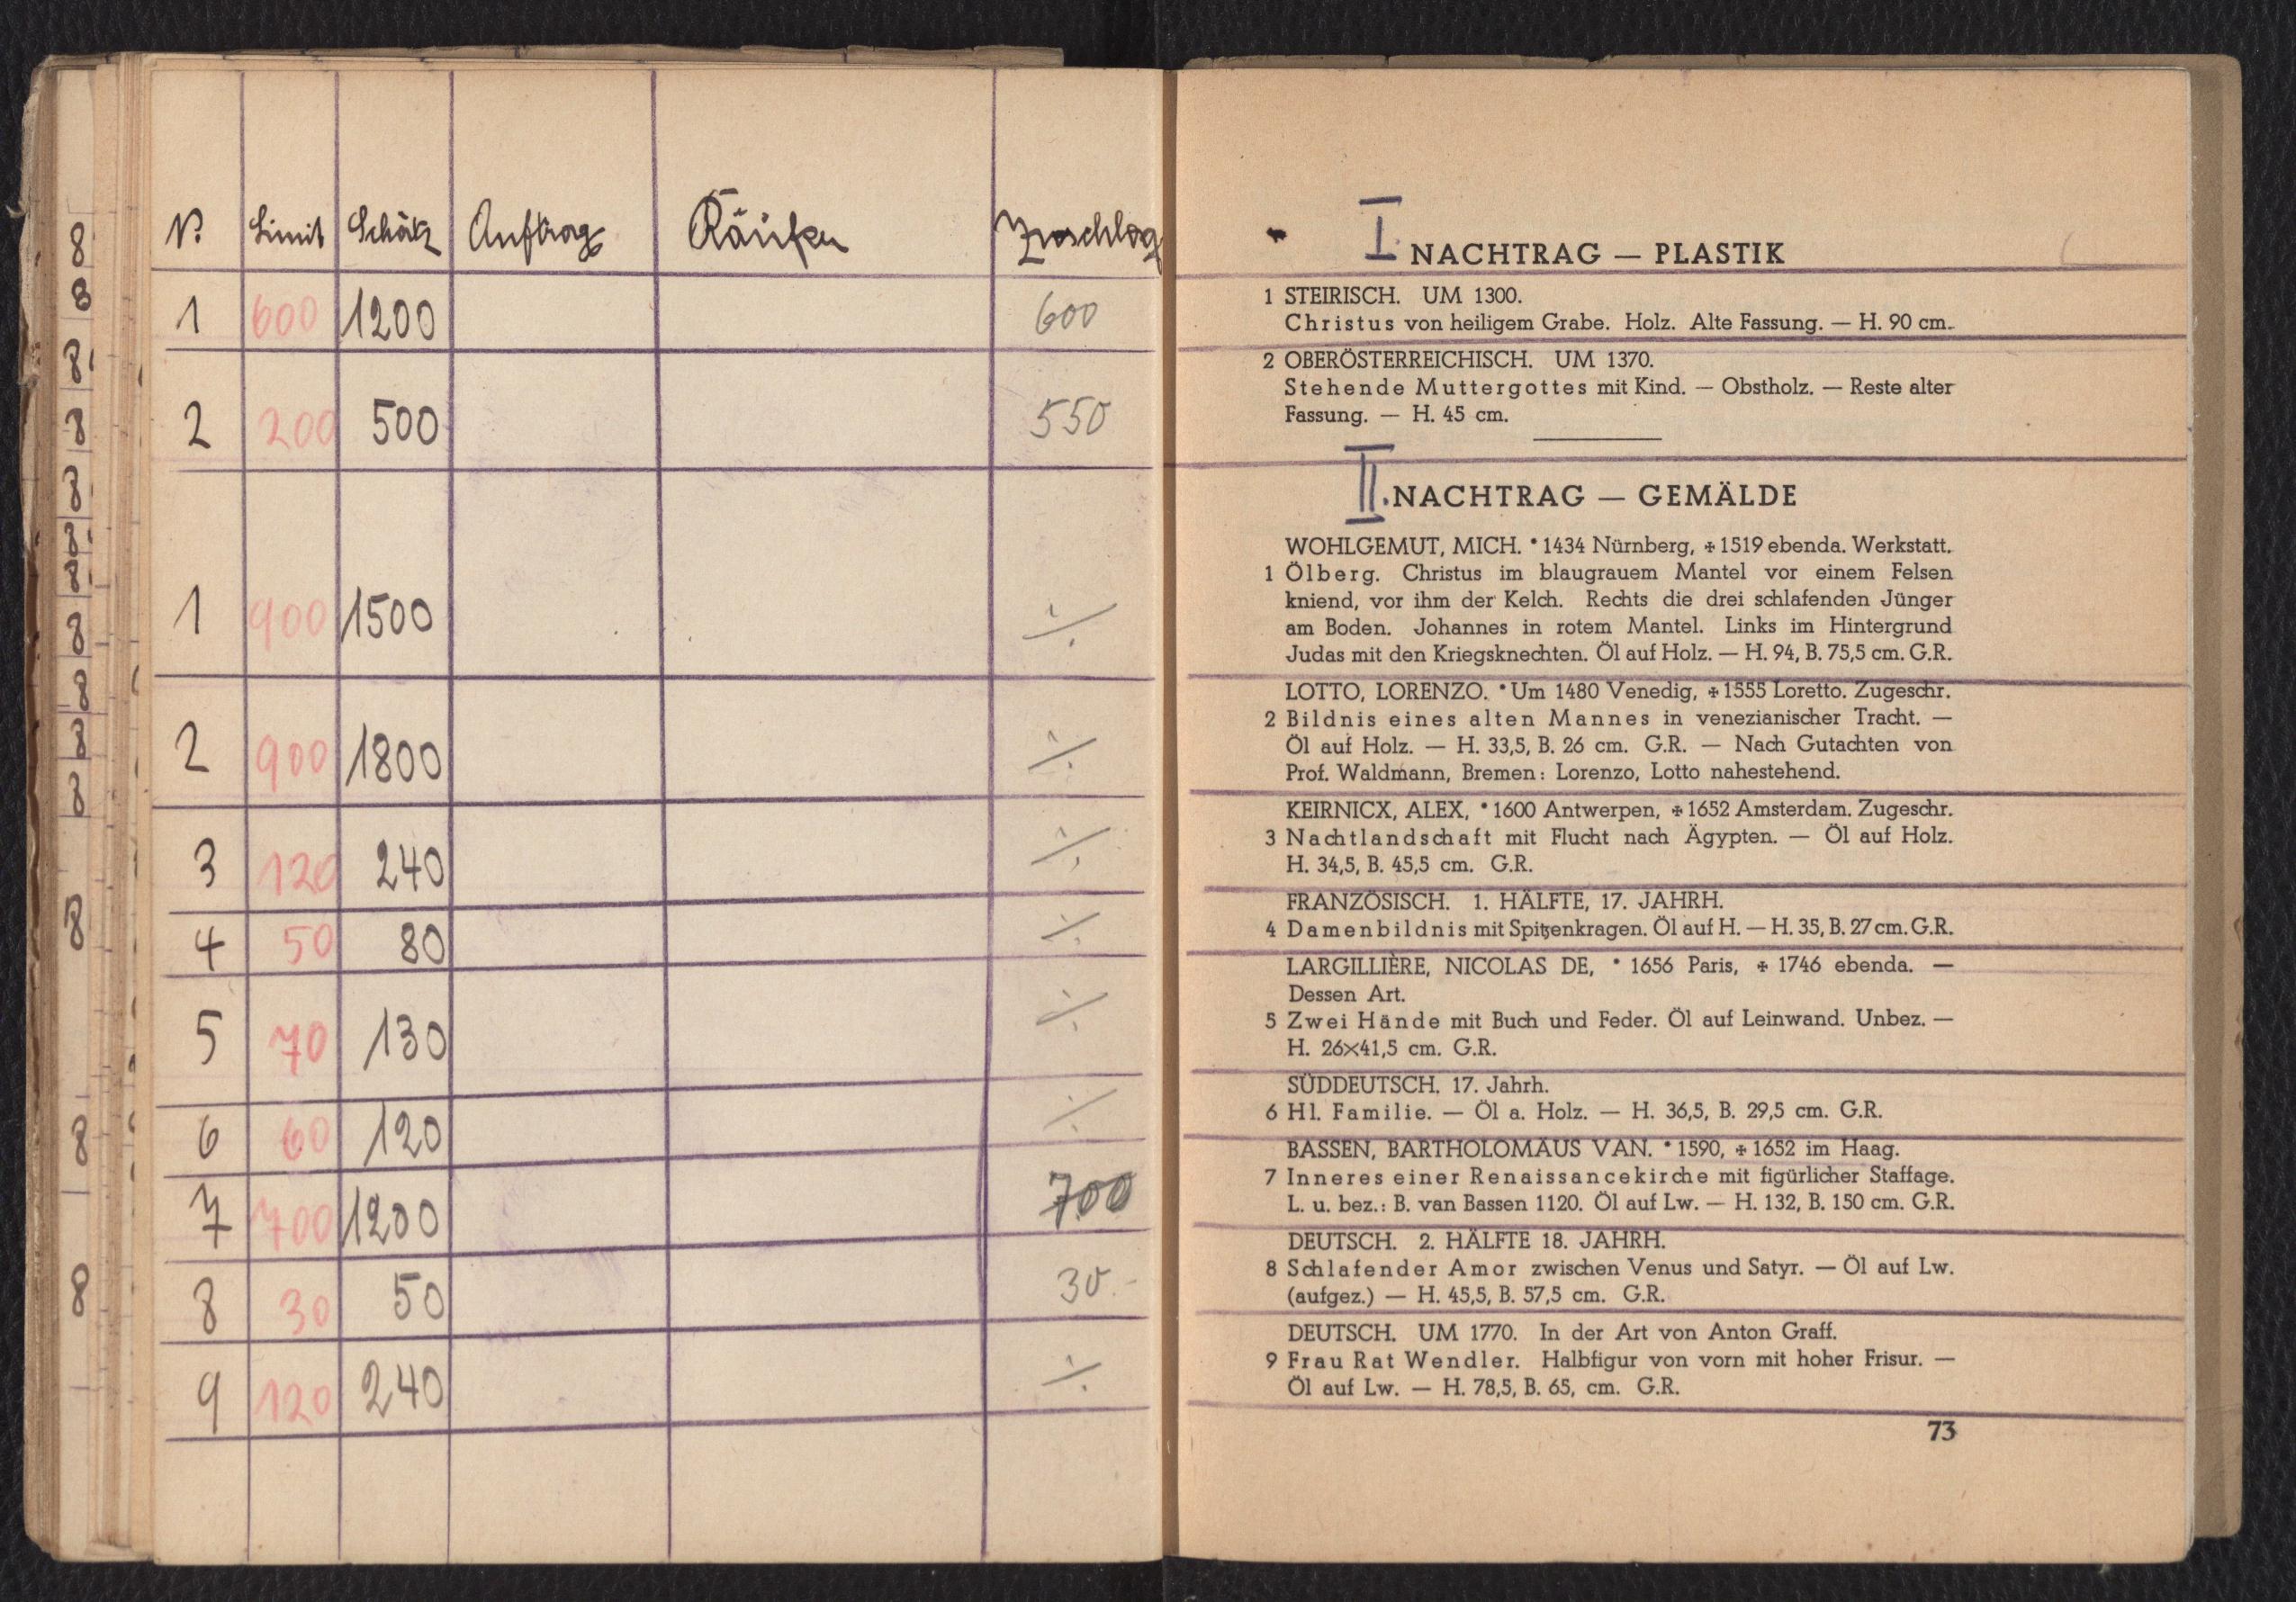 N. Limit Schätz Auftrag Käufer Zuschlag
1 600 1200 600
2 200 500 550
1 900 1500 ·/.
2 900 1800 ·/.
3 120 240 ·/.
4 50 80 ·/.
5 70 130 ·/.
6 60 120 ·/.
7 700 1200 700
8 30 50 30.-
9 120 240 ·/.
8
8
8
8
8
8
8
8
8
8
8
8
8
8
I. NACHTRAG — PLASTIK
1 STEIRISCH. UM 1300.
Christus von heiligem Grabe. Holz. Alte Fassung. — H. 90 cm.
2 OBERÖSTERREICHISCH. UM 1370.
Stehende Muttergottes mit Kind. — Obstholz. — Reste alter
Fassung. — H. 45 cm.
II. NACHTRAG — GEMÄLDE
WOHLGEMUT, MICH. * 1434 Nürnberg, ✠ 1519 ebenda. Werkstatt.
1 Ölberg. Christus im blaugrauem Mantel vor einem Felsen
kniend, vor ihm der Kelch. Rechts die drei schlafenden Jünger
am Boden. Johannes in rotem Mantel. Links im Hintergrund
Judas mit den Kriegsknechten. Öl auf Holz. — H. 94, B. 75,5 cm. G.R.
LOTTO, LORENZO. * Um 1480 Venedig, ✠ 1555 Loretto. Zugeschr.
2 Bildnis eines alten Mannes in venezianischer Tracht. —
Öl auf Holz. — H. 33,5, B. 26 cm. G.R. — Nach Gutachten von
Prof. Waldmann, Bremen: Lorenzo, Lotto nahestehend.
KEIRNICX, ALEX, * 1600 Antwerpen, ✠ 1652 Amsterdam. Zugeschr.
3 Nachtlandschaft mit Flucht nach Ägypten. — Öl auf Holz.
H. 34,5, B. 45,5 cm. G.R.
FRANZÖSISCH. 1. HÄLFTE, 17. JAHRH.
4 Damenbildnis mit Spitzenkragen. Öl auf H. — H. 35, B. 27 cm. G.R.
LARGILLIÈRE, NICOLAS DE, * 1656 Paris, ✠ 1746 ebenda. —
Dessen Art.
5 Zwei Hände mit Buch und Feder. Öl auf Leinwand. Unbez. —
H. 26×41,5 cm. G.R.
SÜDDEUTSCH. 17. Jahrh.
6 Hl. Familie. — Öl a. Holz. — H. 36,5, B. 29,5 cm. G.R.
BASSEN, BARTHOLOMÄUS VAN. * 1590, ✠ 1652 im Haag.
7 Inneres einer Renaissancekirche mit figürlicher Staffage.
L. u. bez.: B. van Bassen 1120. Öl auf Lw. — H. 132, B. 150 cm. G.R.
DEUTSCH. 2. HÄLFTE 18. JAHRH.
8 Schlafender Amor zwischen Venus und Satyr. — Öl auf Lw.
(aufgez.) — H. 45,5, B. 57,5 cm. G.R.
DEUTSCH. UM 1770. In der Art von Anton Graff.
9 Frau Rat Wendler. Halbfigur von vorn mit hoher Frisur. —
Öl auf Lw. — H. 78,5, B. 65, cm. G.R.
73